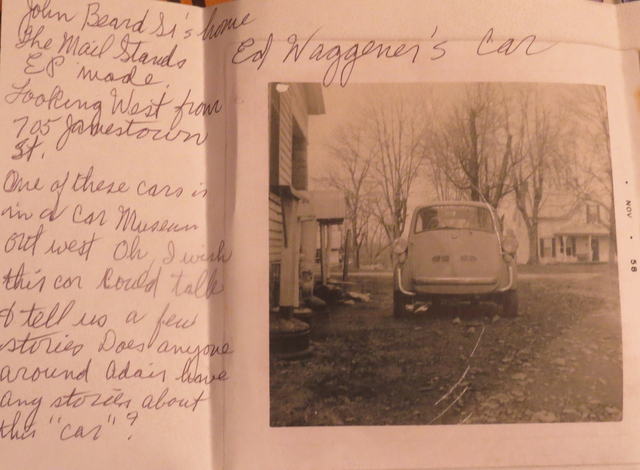 John Beard Sr's home
the Mail Stands
EP made
Looking West from
705 Jamestown
St.
One of these cars is
in a Car Museum
out west Oh, I wish
this car Could talk
& tell us a few
stories Does anyone
around Adair have
any stories about
this "car"?
Ed Waggener's Car
NOV • 58